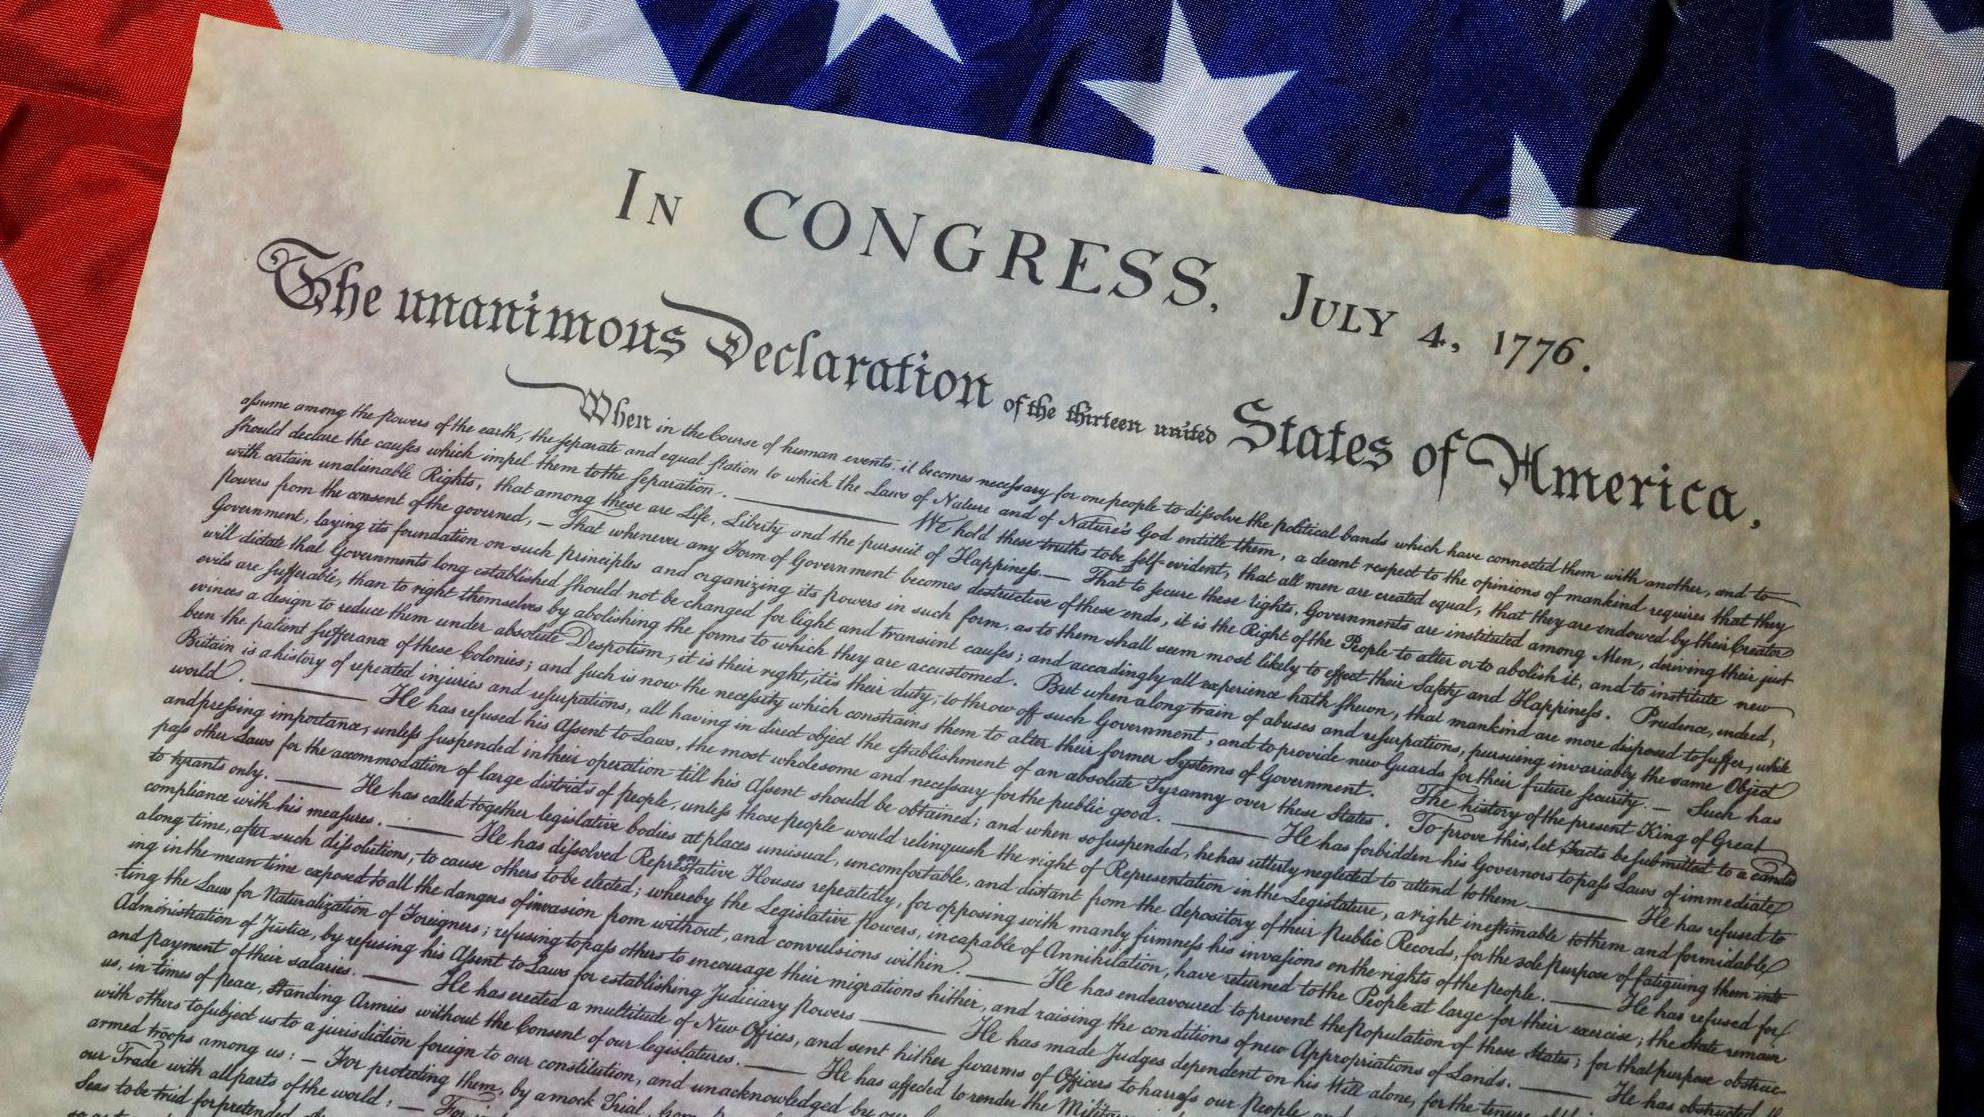 In CONGRESS, July 4, 1776.
The unanimous Declaration of the thirteen united States of America,
When in the Course of human events, it becomes necessary for one people to dissolve the political bands which have connected them with another, and to
assume among the powers of the earth, the separate and equal station to which the Laws of Nature and of Nature's God entitle them, a decent respect to the opinions of mankind requires that they
should declare the causes which impel them to the separation. ——— We hold these truths to be self-evident, that all men are created equal, that they are endowed by their Creator
with certain unalienable Rights, that among these are Life, Liberty and the pursuit of Happiness.— That to secure these rights, Governments are instituted among Men, deriving their just
powers from the consent of the governed, — That whenever any Form of Government becomes destructive of these ends, it is the Right of the People to alter or to abolish it, and to institute new
Government, laying its foundation on such principles and organizing its powers in such form, as to them shall seem most likely to effect their Safety and Happiness. Prudence, indeed,
will dictate that Governments long established should not be changed for light and transient causes; and accordingly all experience hath shewn, that mankind are more disposed to suffer, while
evils are sufferable, than to right themselves by abolishing the forms to which they are accustomed. But when a long train of abuses and usurpations, pursuing invariably the same Object
evinces a design to reduce them under absolute Despotism, it is their right, it is their duty, to throw off such Government, and to provide new Guards for their future security. — Such has
been the patient sufferance of these Colonies; and such is now the necessity which constrains them to alter their former Systems of Government. The history of the present King of Great
Britain is a history of repeated injuries and usurpations, all having in direct object the establishment of an absolute Tyranny over these States. To prove this, let Facts be submitted to a candid
world. ——— He has refused his Assent to Laws, the most wholesome and necessary for the public good. ——— He has forbidden his Governors to pass Laws of immediate
and pressing importance, unless suspended in their operation till his Assent should be obtained; and when so suspended, he has utterly neglected to attend to them. ——— He has refused to
pass other Laws for the accommodation of large districts of people, unless those people would relinquish the right of Representation in the Legislature, a right inestimable to them and formidable
to tyrants only. ——— He has called together legislative bodies at places unusual, uncomfortable, and distant from the depository of their Public Records, for the sole purpose of fatiguing them into
compliance with his measures. ——— He has dissolved Representative Houses repeatedly, for opposing with manly firmness his invasions on the rights of the people. ——— He has refused for
a long time, after such dissolutions, to cause others to be elected; whereby the Legislative powers, incapable of Annihilation, have returned to the People at large for their exercise; the State remain
ing in the mean time exposed to all the dangers of invasion from without, and convulsions within. ——— He has endeavoured to prevent the population of these States; for that purpose obstruc-
ting the Laws for Naturalization of Foreigners; refusing to pass others to encourage their migrations hither, and raising the conditions of new Appropriations of Lands. ——— He has obstructed the
Administration of Justice, by refusing his Assent to Laws for establishing Judiciary powers. ——— He has made Judges dependent on his Will alone, for the tenure of
and payment of their salaries. ——— He has erected a multitude of New Offices, and sent hither swarms of Officers to harrass our People and
us, in times of peace, Standing Armies without the Consent of our legislatures. ——— He has affected to render the
with others to subject us to a jurisdiction foreign to our constitution, and unacknowledged by our
armed troops among us: — For protecting them, by a mock Trial, from
our Trade with all parts of the world: — For
Seas to be tried for pretended